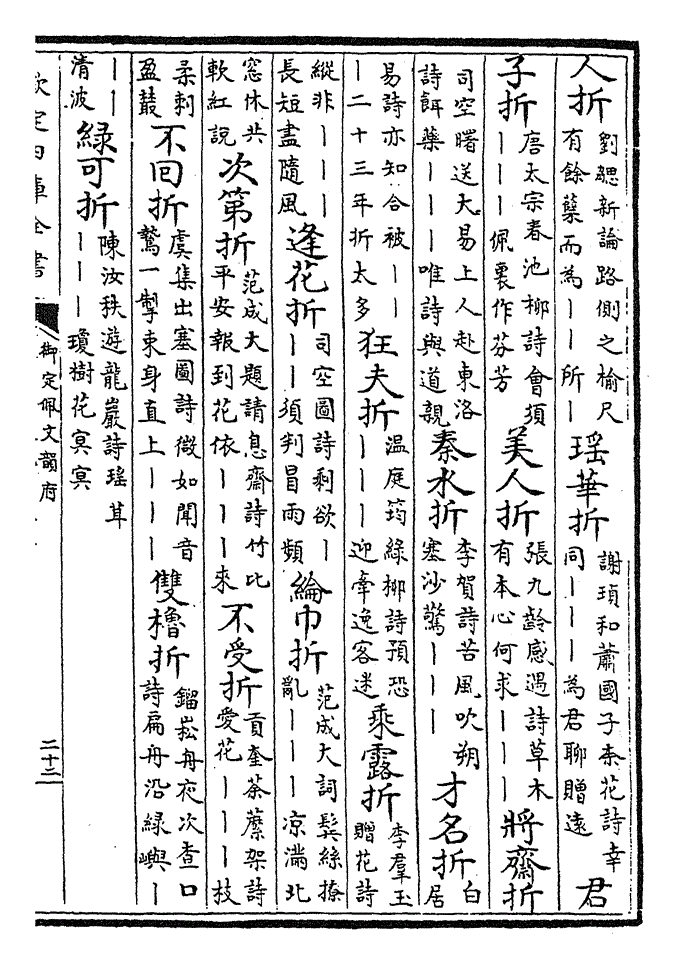 人折劉勰新論路側之榆尺有餘蘖而為丨丨所丨瑶華折謝瑱和蕭國子柰花詩幸同丨丨丨為君聊贈遠君
子折唐太宗春池柳詩會須丨丨丨佩裏作芬芳美人折張九齡感遇詩草木有本心何求丨丨丨將齋折
司空曙送大易上人赴東洛詩餌藥丨丨丨唯詩與道親秦水折李賀詩苦風吹朔塞沙驚丨丨丨才名折白居
易詩亦知合被丨丨丨二十三年折太多狂夫折温庭筠綠柳詩預恐丨丨丨迎牽逸客迷乘露折李羣玉贈花詩
縱非丨丨丨長短盡隨風逢花折司空圖詩剩欲丨丨丨須判冒雨頻綸巾折范成大詞鬂絲撩亂丨丨丨凉滿北
窓休共軟紅說次第折范成大題請息齋詩竹比平安報到花依丨丨丨來不受折貢奎荼蘪架詩愛花丨丨丨技
柔刺盈鬖不回折虞集出塞圖詩微如聞音鷙一掣束身直上丨丨丨雙櫓折鎦崧舟夜次查口詩扁舟沿緑嶼丨
丨丨清波綠可折陳汝秩遊龍巖詩瑤草丨丨丨瓊樹花冥冥
欽定四庫全書
御定佩文韻府
二十二